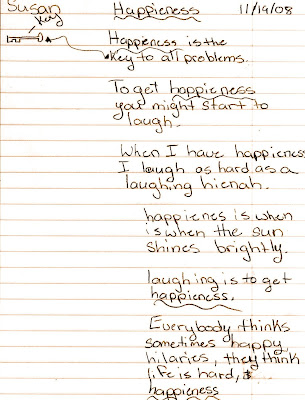 Susan Happieness 11/19/08
Key
Happieness is the
Key to all problems.
To get happieness
you might start to
laugh.
When I have happieness
I laugh as hard as a
laughing hienah.
happienes is when
is when the sun
shines brightly.
laughing is to get
happieness.
Everybody thinks
sometimes happy
hilaries, they think
life is hard,
happieness